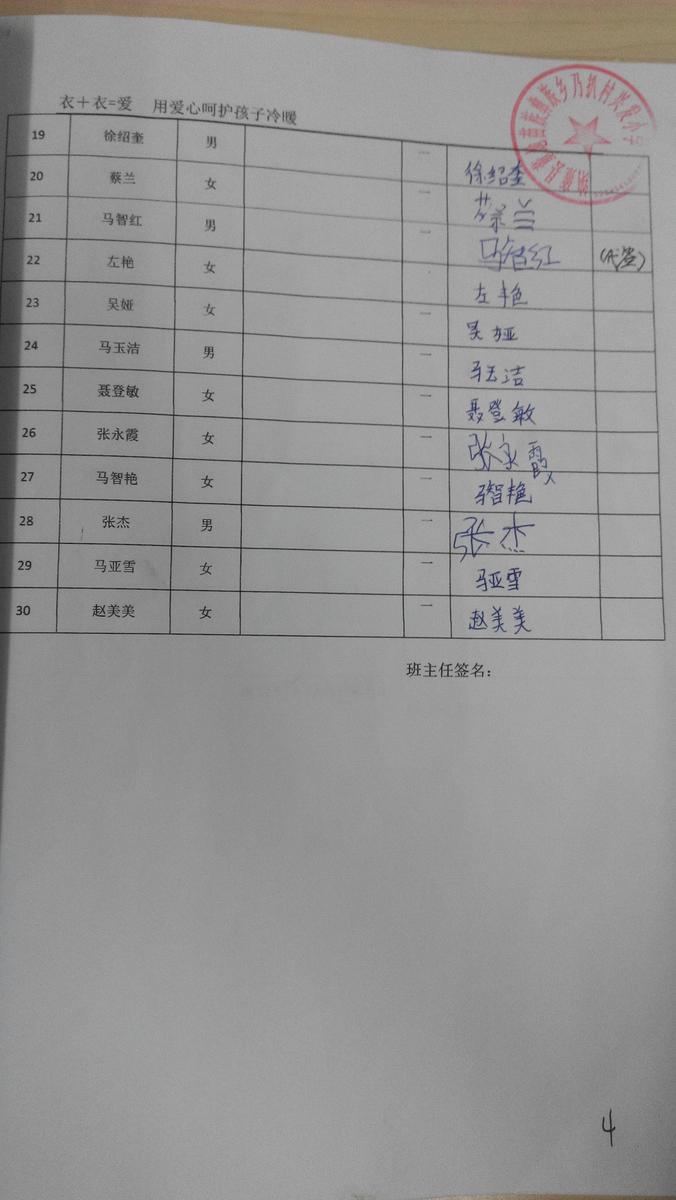 衣+衣=爱 用爱心呵护孩子冷暖
19 徐绍奎 男 一 徐绍奎
20 蔡兰 女 一 蔡兰
21 马智红 男 一 马智红 (代签)
22 左艳 女 左艳
23 吴娅 女 一 吴娅
24 马玉洁 男 一 马玉洁
25 聂登敏 女 一 聂登敏
26 张永霞 女 一 张永霞
27 马智艳 女 一 马智艳
28 张杰 男 一 张杰
29 马亚雪 女 一 马亚雪
30 赵美美 女 一 赵美美
班主任签名：
4